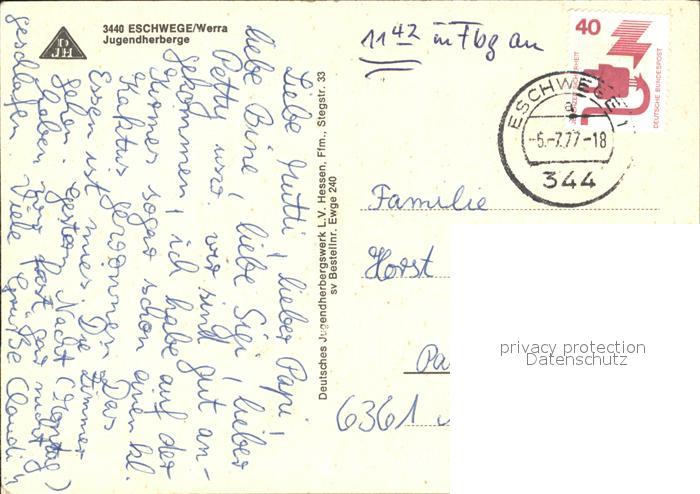 DJH
3440 ESCHWEGE/Werra
Jugendherberge
Liebe Mutti! lieber Papi!
liebe Bine! liebe Sigi! lieber
Petty usw. wir sind gut an-
gekommen, ich habe auf der
Kirmes sogar schon einen kl.
Kaktus gewonnen. Das
Essen ist mies. Die Zimmer
gehn. Gestern Nacht (Montag)
haben wir fast gar nicht
geschlafen
Viele Grüße Claudi
Deutsches Jugendherbergswerk L.V. Hessen, Ffm., Stegstr. 33
sv Bestellnr. Ewge 240
11 42 in Fbg an
40
DEUTSCHE BUNDESPOST
ESCHWEGE 1
a
-5.-7.77-18
344
Familie
Horst
Pa
6361
privacy protection
Datenschutz